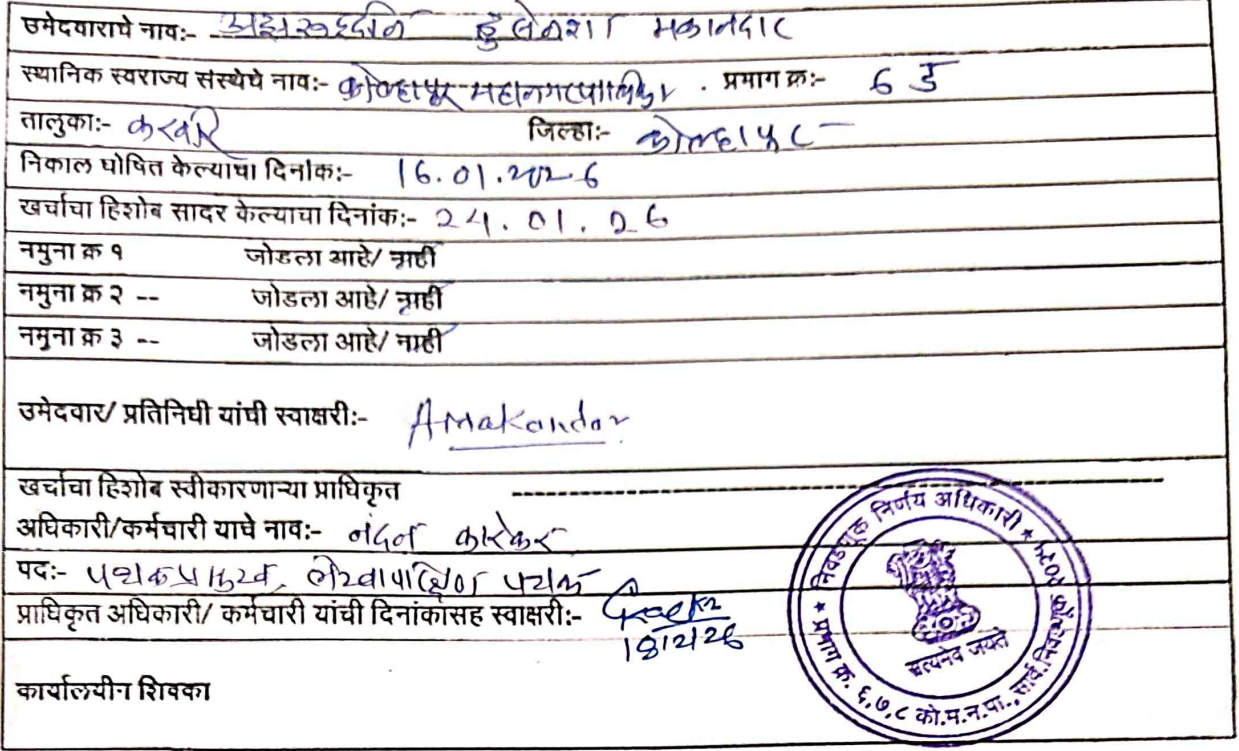 उमेदवाराचे नाव:- अझरुद्दीन हुसेनशा मकानदार
स्थानिक स्वराज्य संस्थेचे नाव:- कोल्हापूर महानगरपालिका . प्रभाग क्र:- 6 ड
तालुका:- करवीर जिल्हा:- कोल्हापूर
निकाल घोषित केल्याचा दिनांक:- 16.01.2026
खर्चाचा हिशोब सादर केल्याचा दिनांक:- 24.01.26
नमुना क्र १ जोडला आहे/ नाही
नमुना क्र २ -- जोडला आहे/ नाही
नमुना क्र ३ -- जोडला आहे/ नाही
उमेदवार/ प्रतिनिधी यांची स्वाक्षरी:- AMakandar
खर्चाचा हिशोब स्वीकारणाऱ्या प्राधिकृत
अधिकारी/कर्मचारी याचे नाव:- नंदन कारेकर
पद:- पथक प्रमुख, लेखापरिक्षण पथक
प्राधिकृत अधिकारी/ कर्मचारी यांची दिनांकासह स्वाक्षरी:-
18/2/26
कार्यालयीन शिक्का
निवडणूक निर्णय अधिकारी
प्रभाग क्र. ६,७,८ को.म.न.पा.,
सत्यमेव जयते